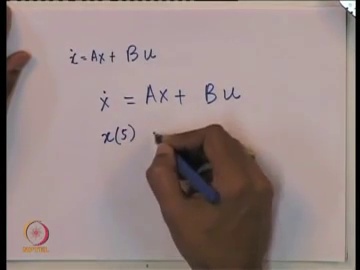 ẋ = Ax + Bu
ẋ = Ax + Bu
x(5)
NPTEL